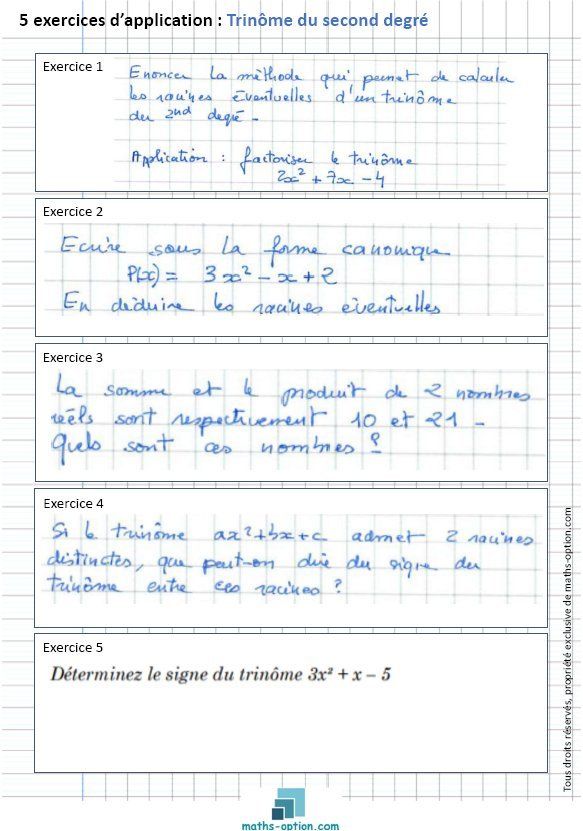 5 exercices d’application : Trinôme du second degré
Exercice 1
Enoncer la méthode qui permet de calculer
les racines éventuelles d'un trinôme
du 2nd degré -
Application : factoriser le trinôme
2x² + 7x - 4
Exercice 2
Ecrire sous la forme canonique
P(x) = 3x² - x + 2
En déduire les racines éventuelles
Exercice 3
La somme et le produit de 2 nombres
réels sont respectivement 10 et 21 -
Quels sont ces nombres ?
Exercice 4
Si le trinôme ax²+bx+c admet 2 racines
distinctes, que peut-on dire du signe du
trinôme entre ces racines ?
Exercice 5
Déterminez le signe du trinôme 3x² + x – 5
Tous droits réservés, propriété exclusive de maths-option.com
maths-option.com